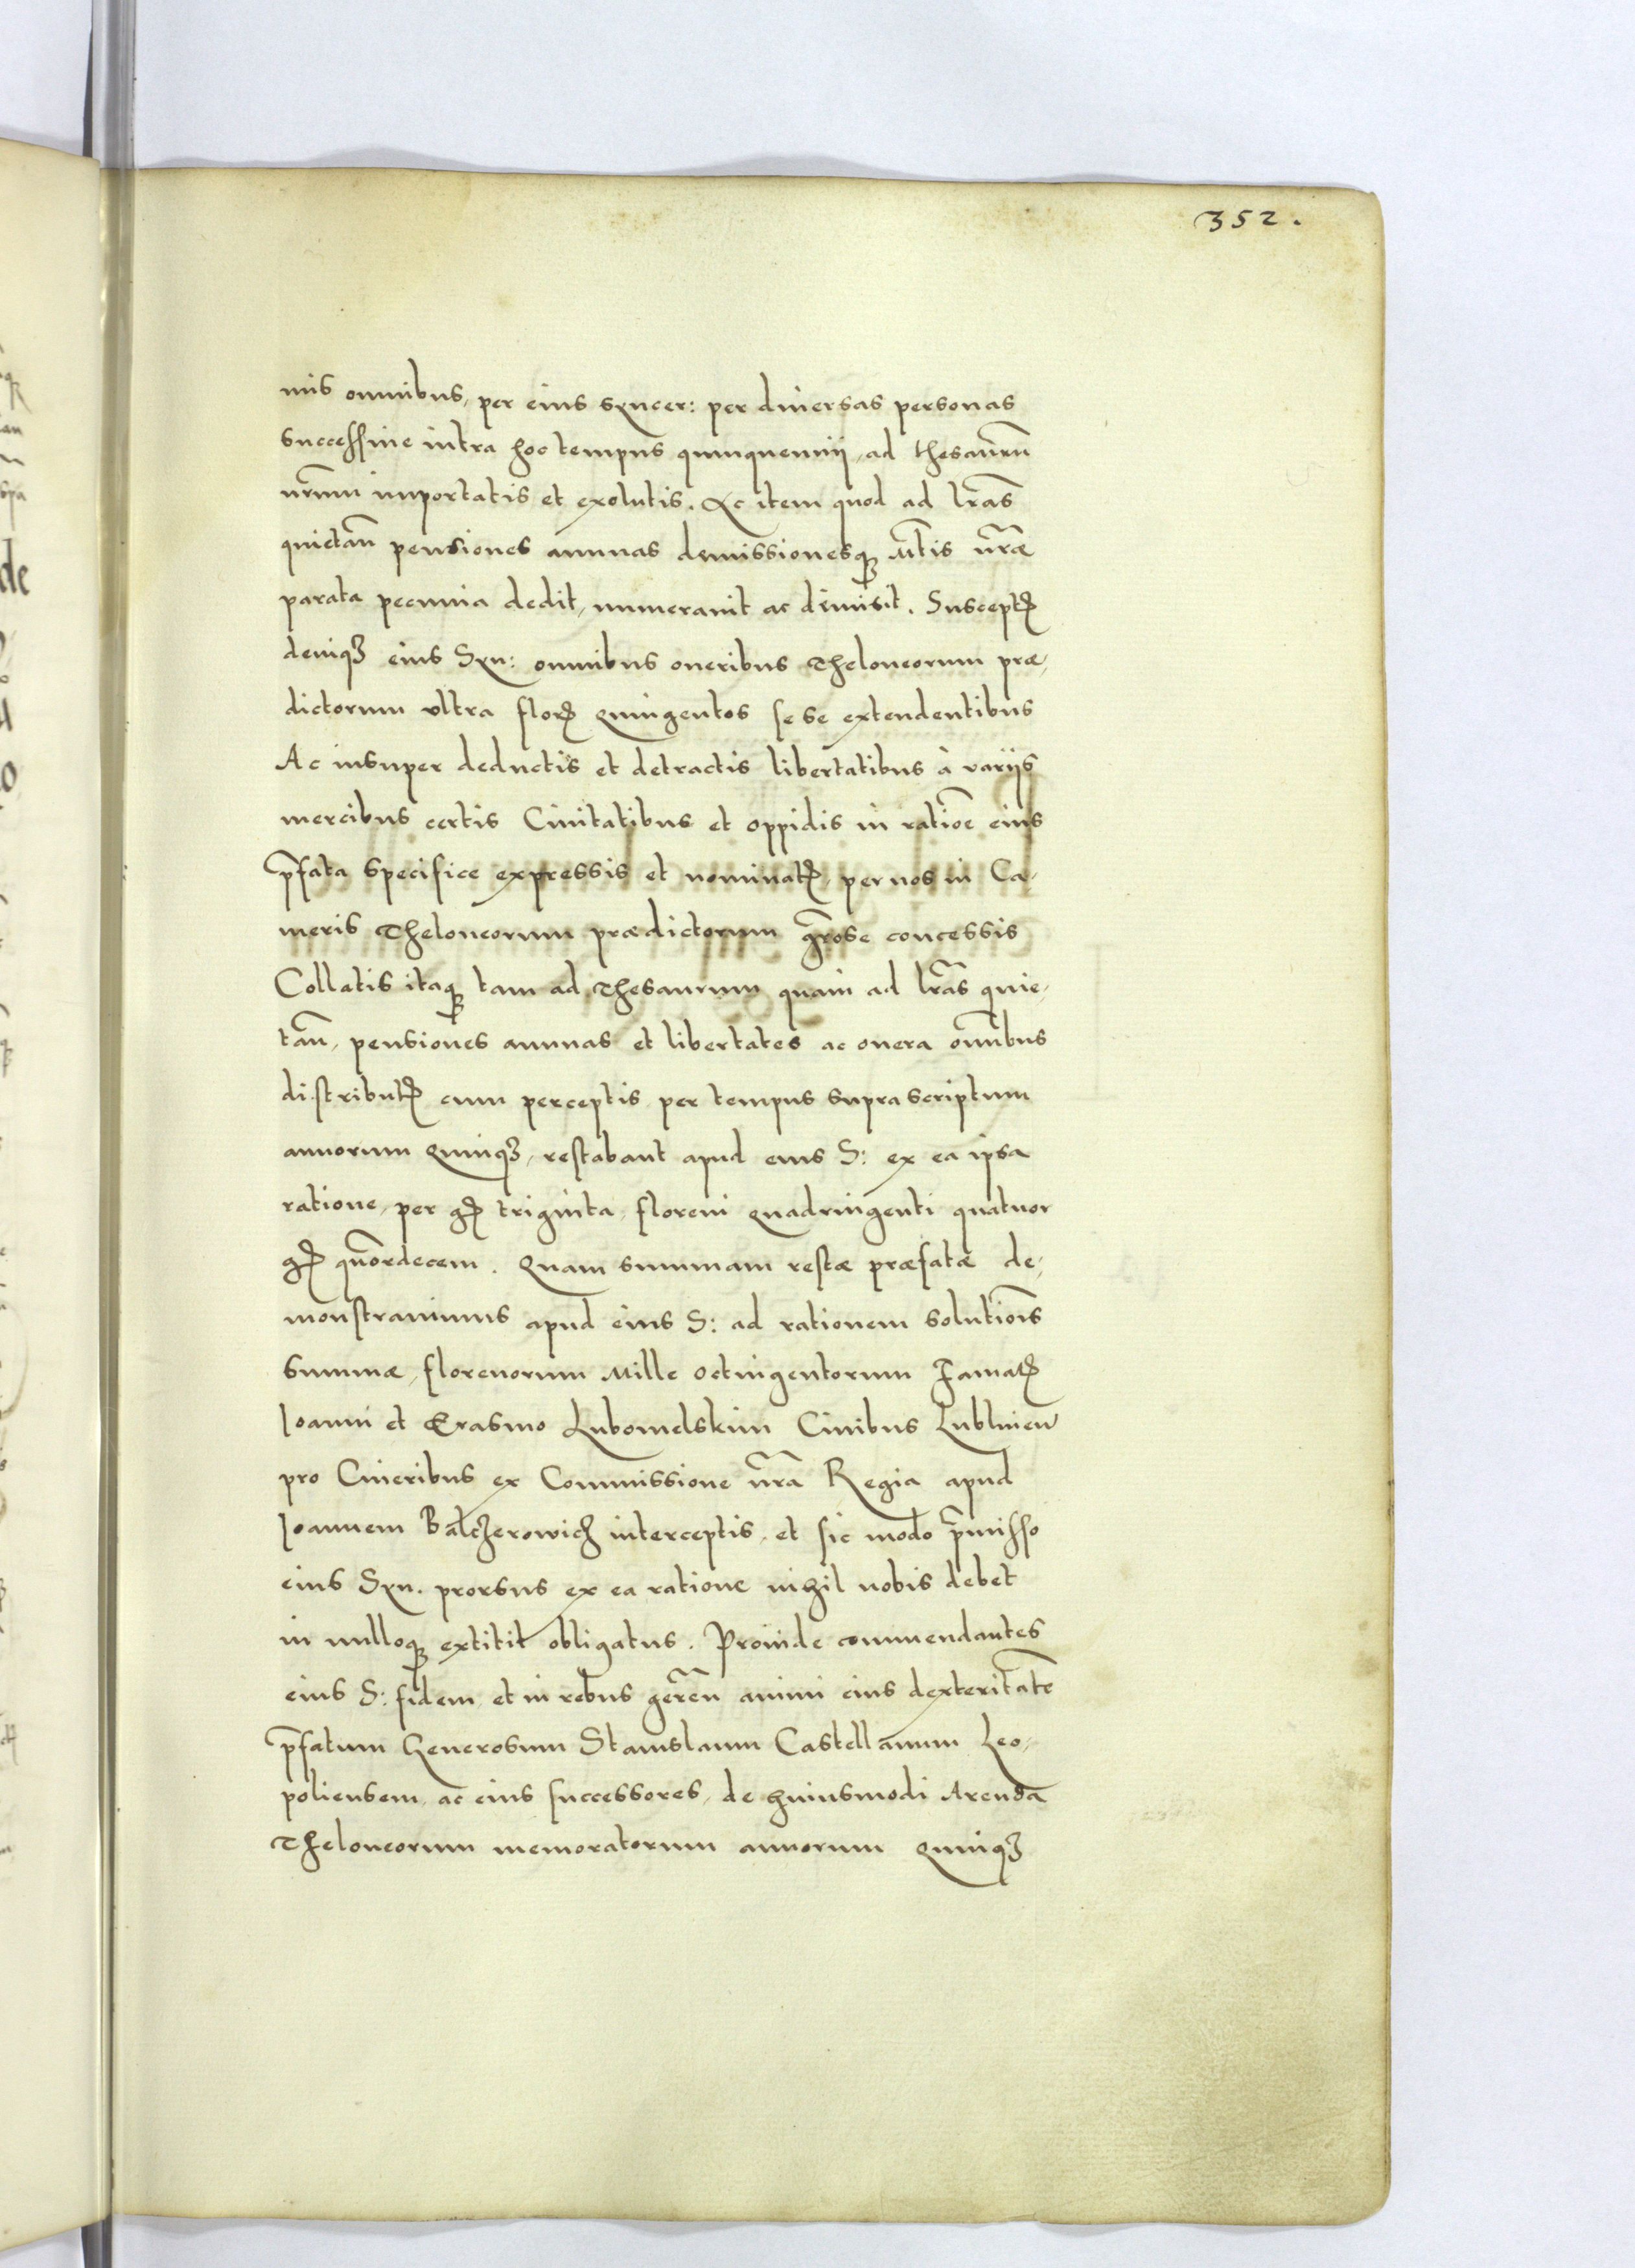 352.
nis omnibus, per eius syncer: per diuersas personas
successiue intra hoc tempus quinquennij, ad thesaurũ
nr̃um importatis et exolutis. Ac item quod ad lr̃as
quietan̄ pensiones annuas demissionesqꝫ M̃tis nr̃æ
parata pecunia dedit, numerauit ac dimisit. Susceptꝭ
deniqꝫ eius Syn: omnibus oneribus Theloneorum præ,
dictorum vltra florꝭ quingentos se se extendentibus
Ac insuper deductis et detractis libertatibus à varijs
mercibus certis Ciuitatibus et oppidis in ratiõe eius
p̃fata specifice expressis et nominatꝭ, per nos in Ca,
meris Theloneorum prædictorum gr̃ose concessis
Collatis itaqꝫ tam ad Thesaurum quam ad lr̃as quie,
tan̄, pensiones annuas et libertates ac onera om̃ibus
distributꝭ cum perceptis per tempus supra scriptum
annorum quinqꝫ, restabant apud eius S: ex ea ipsa
ratione, per gꝭ triginta, floreni quadringenti quatuor
gꝭ quõrdecem. Quam summam restæ præfatæ de,
monstrauimus apud eius S: ad rationem solutiõis
summæ, florenorum Mille octingentorum Famatꝭ
Joanni et Erasmo Lubomelskim Ciuibus Lublinen̄
pro Cineribus ex Commissione nr̃a Regia apud
Joannem Balczerowicz interceptis, et sic modo p̃misso
eius Syn. prorsus ex ea ratione nihil nobis debet
in nulloqꝫ extitit obligatus. Proinde commendantes
eius S: fidem et in rebus geren̄ animi eius dexteritatẽ
p̃fatum Generosum Stanislaum Castellanum Leo,
poliensem, ac eius successores, de huiusmodi Arenda
Theloneorum memoratorum annorum quinqꝫ